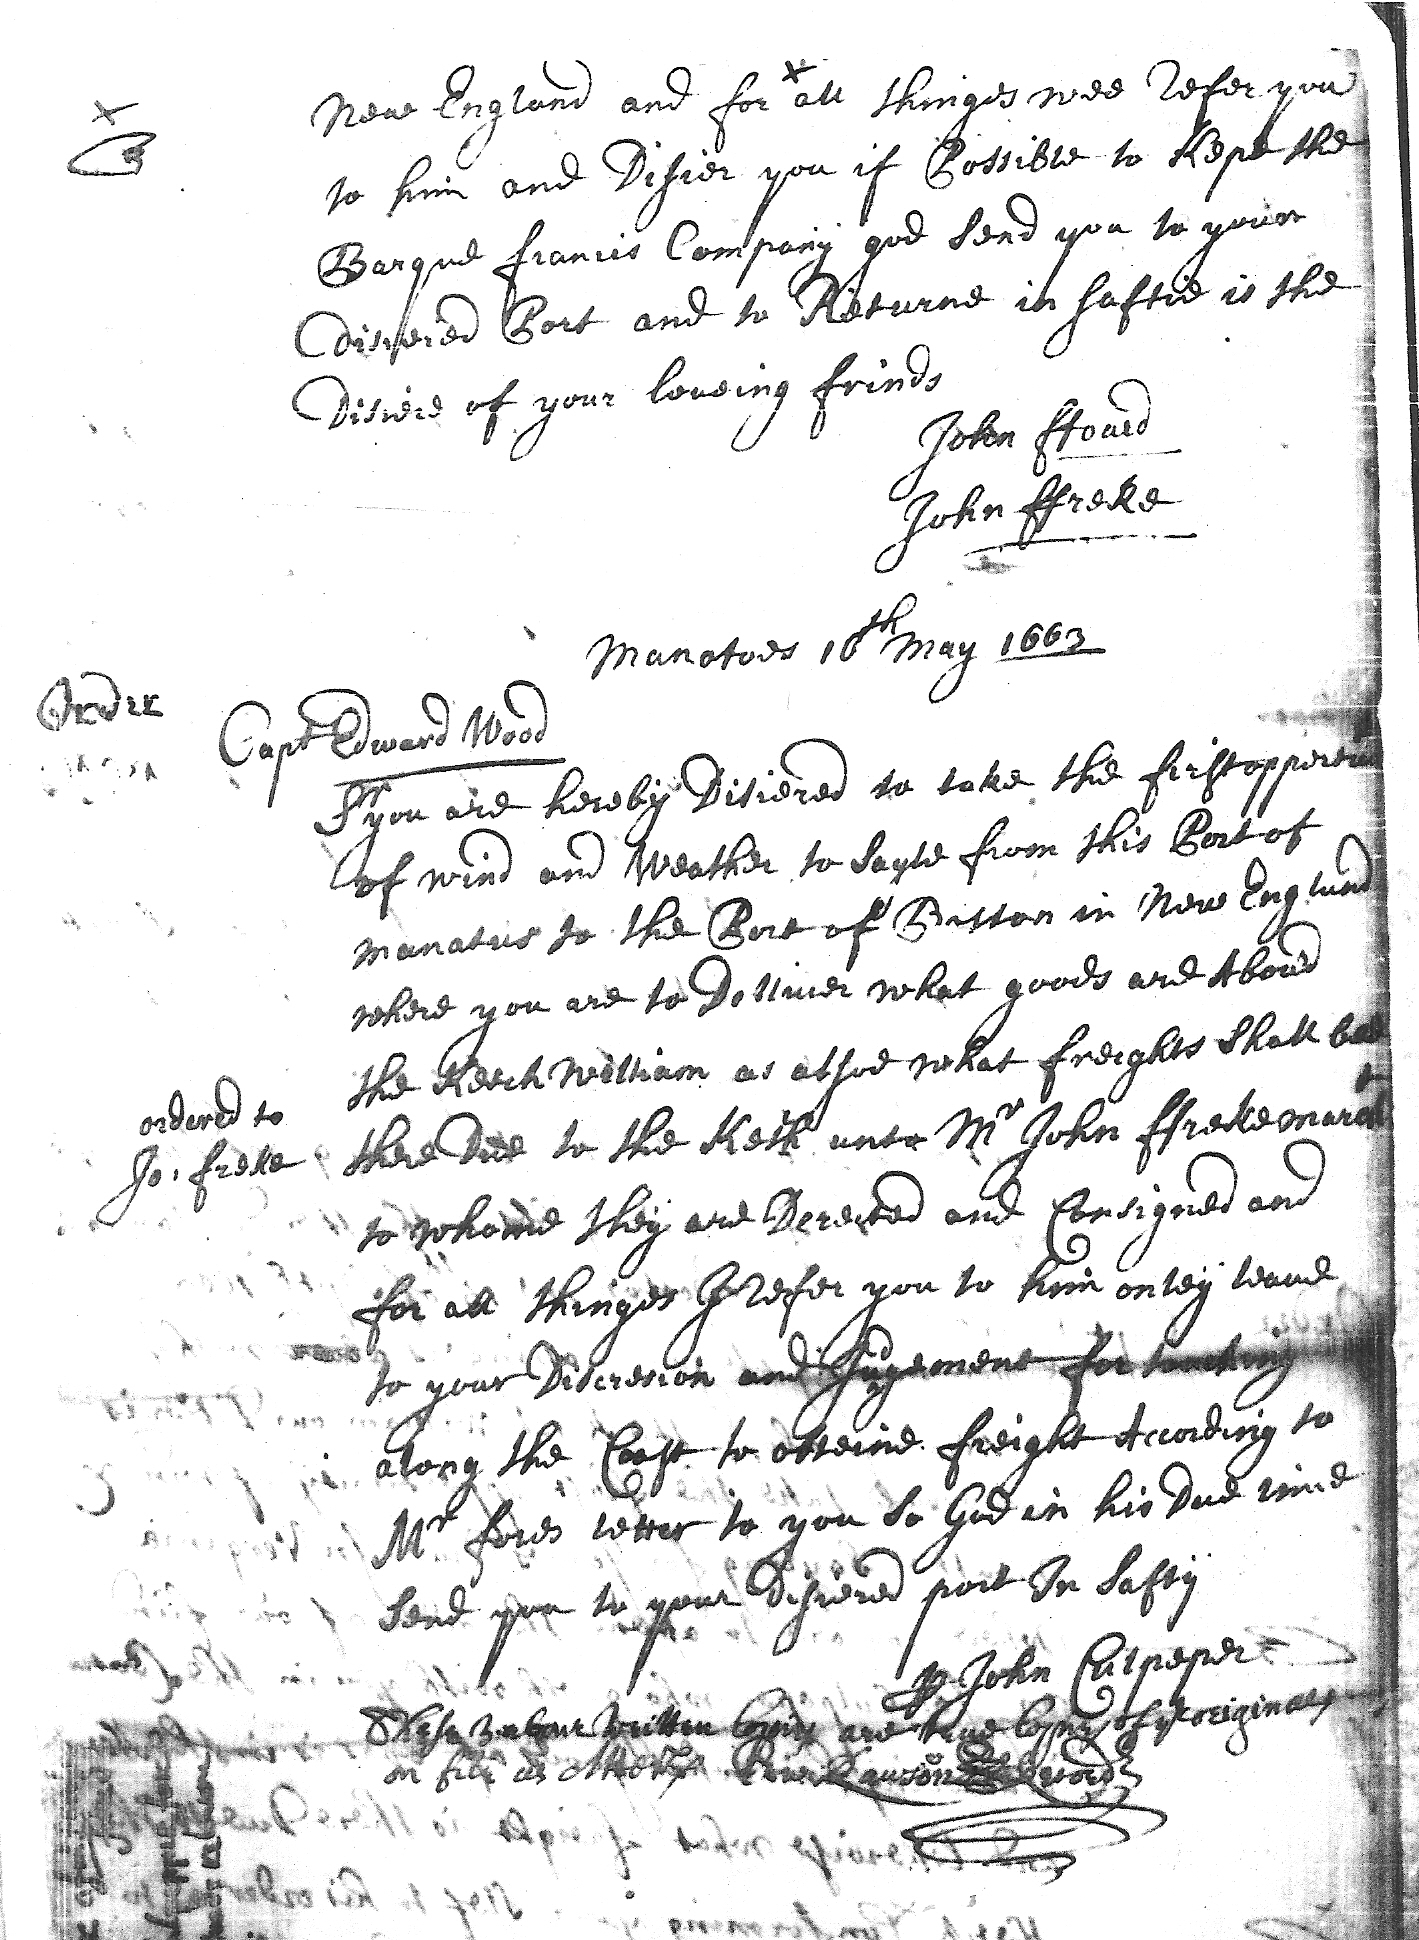 New England and for all thinges wee Refer you
to him and Disier you if Possible to Kepe the
Barque francis Company god Send you to youer
disiered Port and to Returne in saftie is the
Disiere of your loveing frinds
John ffoard
John ffreke
Manatoes 16th May 1663
Order
Capt Edward Wood
Sr you are hereby Disiered to take the first
of wind and Weather to Sayle from this Port of
manatus to the Port of Boston in New England
where you are to Delliver what goods are Abourd
the Ketch William as alsoe what freights Shall bee
ordered to
Jo: freke
there Due to the Keth unto Mr John ffreke
to whome they are Derected and Consigned and
for all thinges I refer you to him onley leave
to your Discresion and Jugement for touching
along the Coast to obteine freight According to
Mr fords letter to you So God in his Due time
Send you to your Disiered port In Safty
p John Culpeper
These 2 above written Copies are true Copies of ye originals
on file as Attests Edw Rawson Record